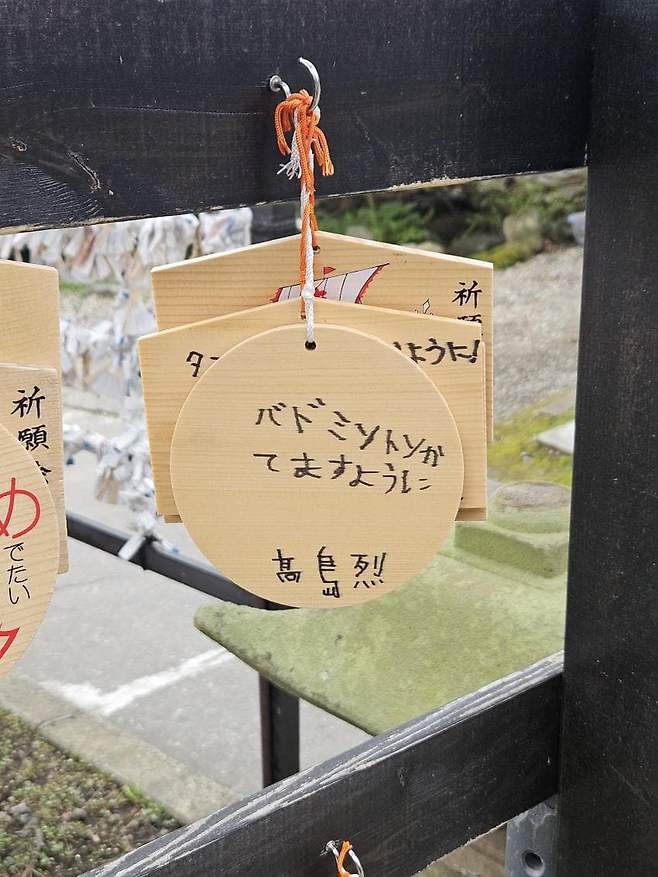 祈願
タ
ように!
バドミントンか
てますように
高島烈
祈願
め
でたい